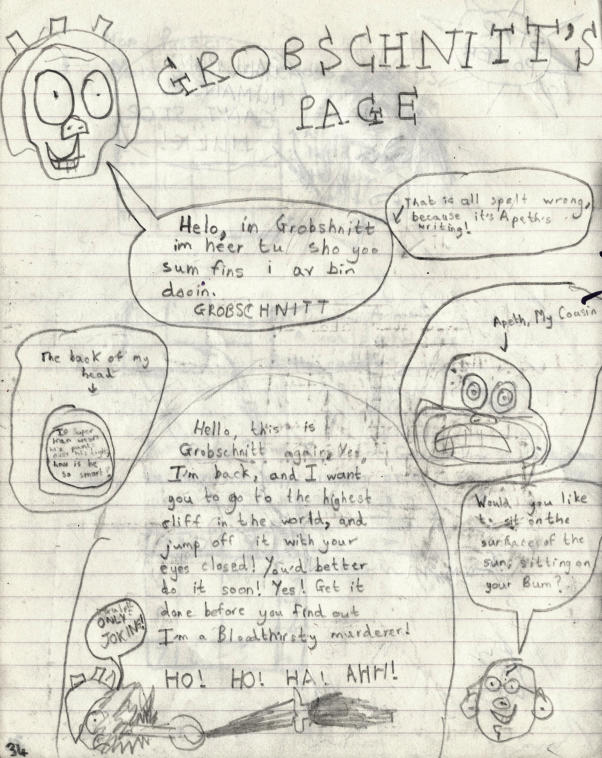 GROBSCHNITT'S
PAGE
Helo, im Grobshnitt
im heer tu sho yoo
sum fins i av bin
dooin.
GROBSCHNITT
That is all spelt wrong,
because it's Apeth's
writing!
Apeth, My Cousin
The back of my
head
If Super
man wears
his pants
over his tights
how is he
so smart?
Hello, this is
Grobschnitt again, Yes,
I'm back, and I want
you to go to the highest
cliff in the world, and
jump off it with your
eyes closed! You'd better
do it soon! Yes! Get it
done before you find out
I'm a Bloodthirsty murderer!
HO! HO! HA! AHH!
Would you like
to sit on the
surface of the
sun, sitting on
your Bum?
ONLY
JOKING!
34